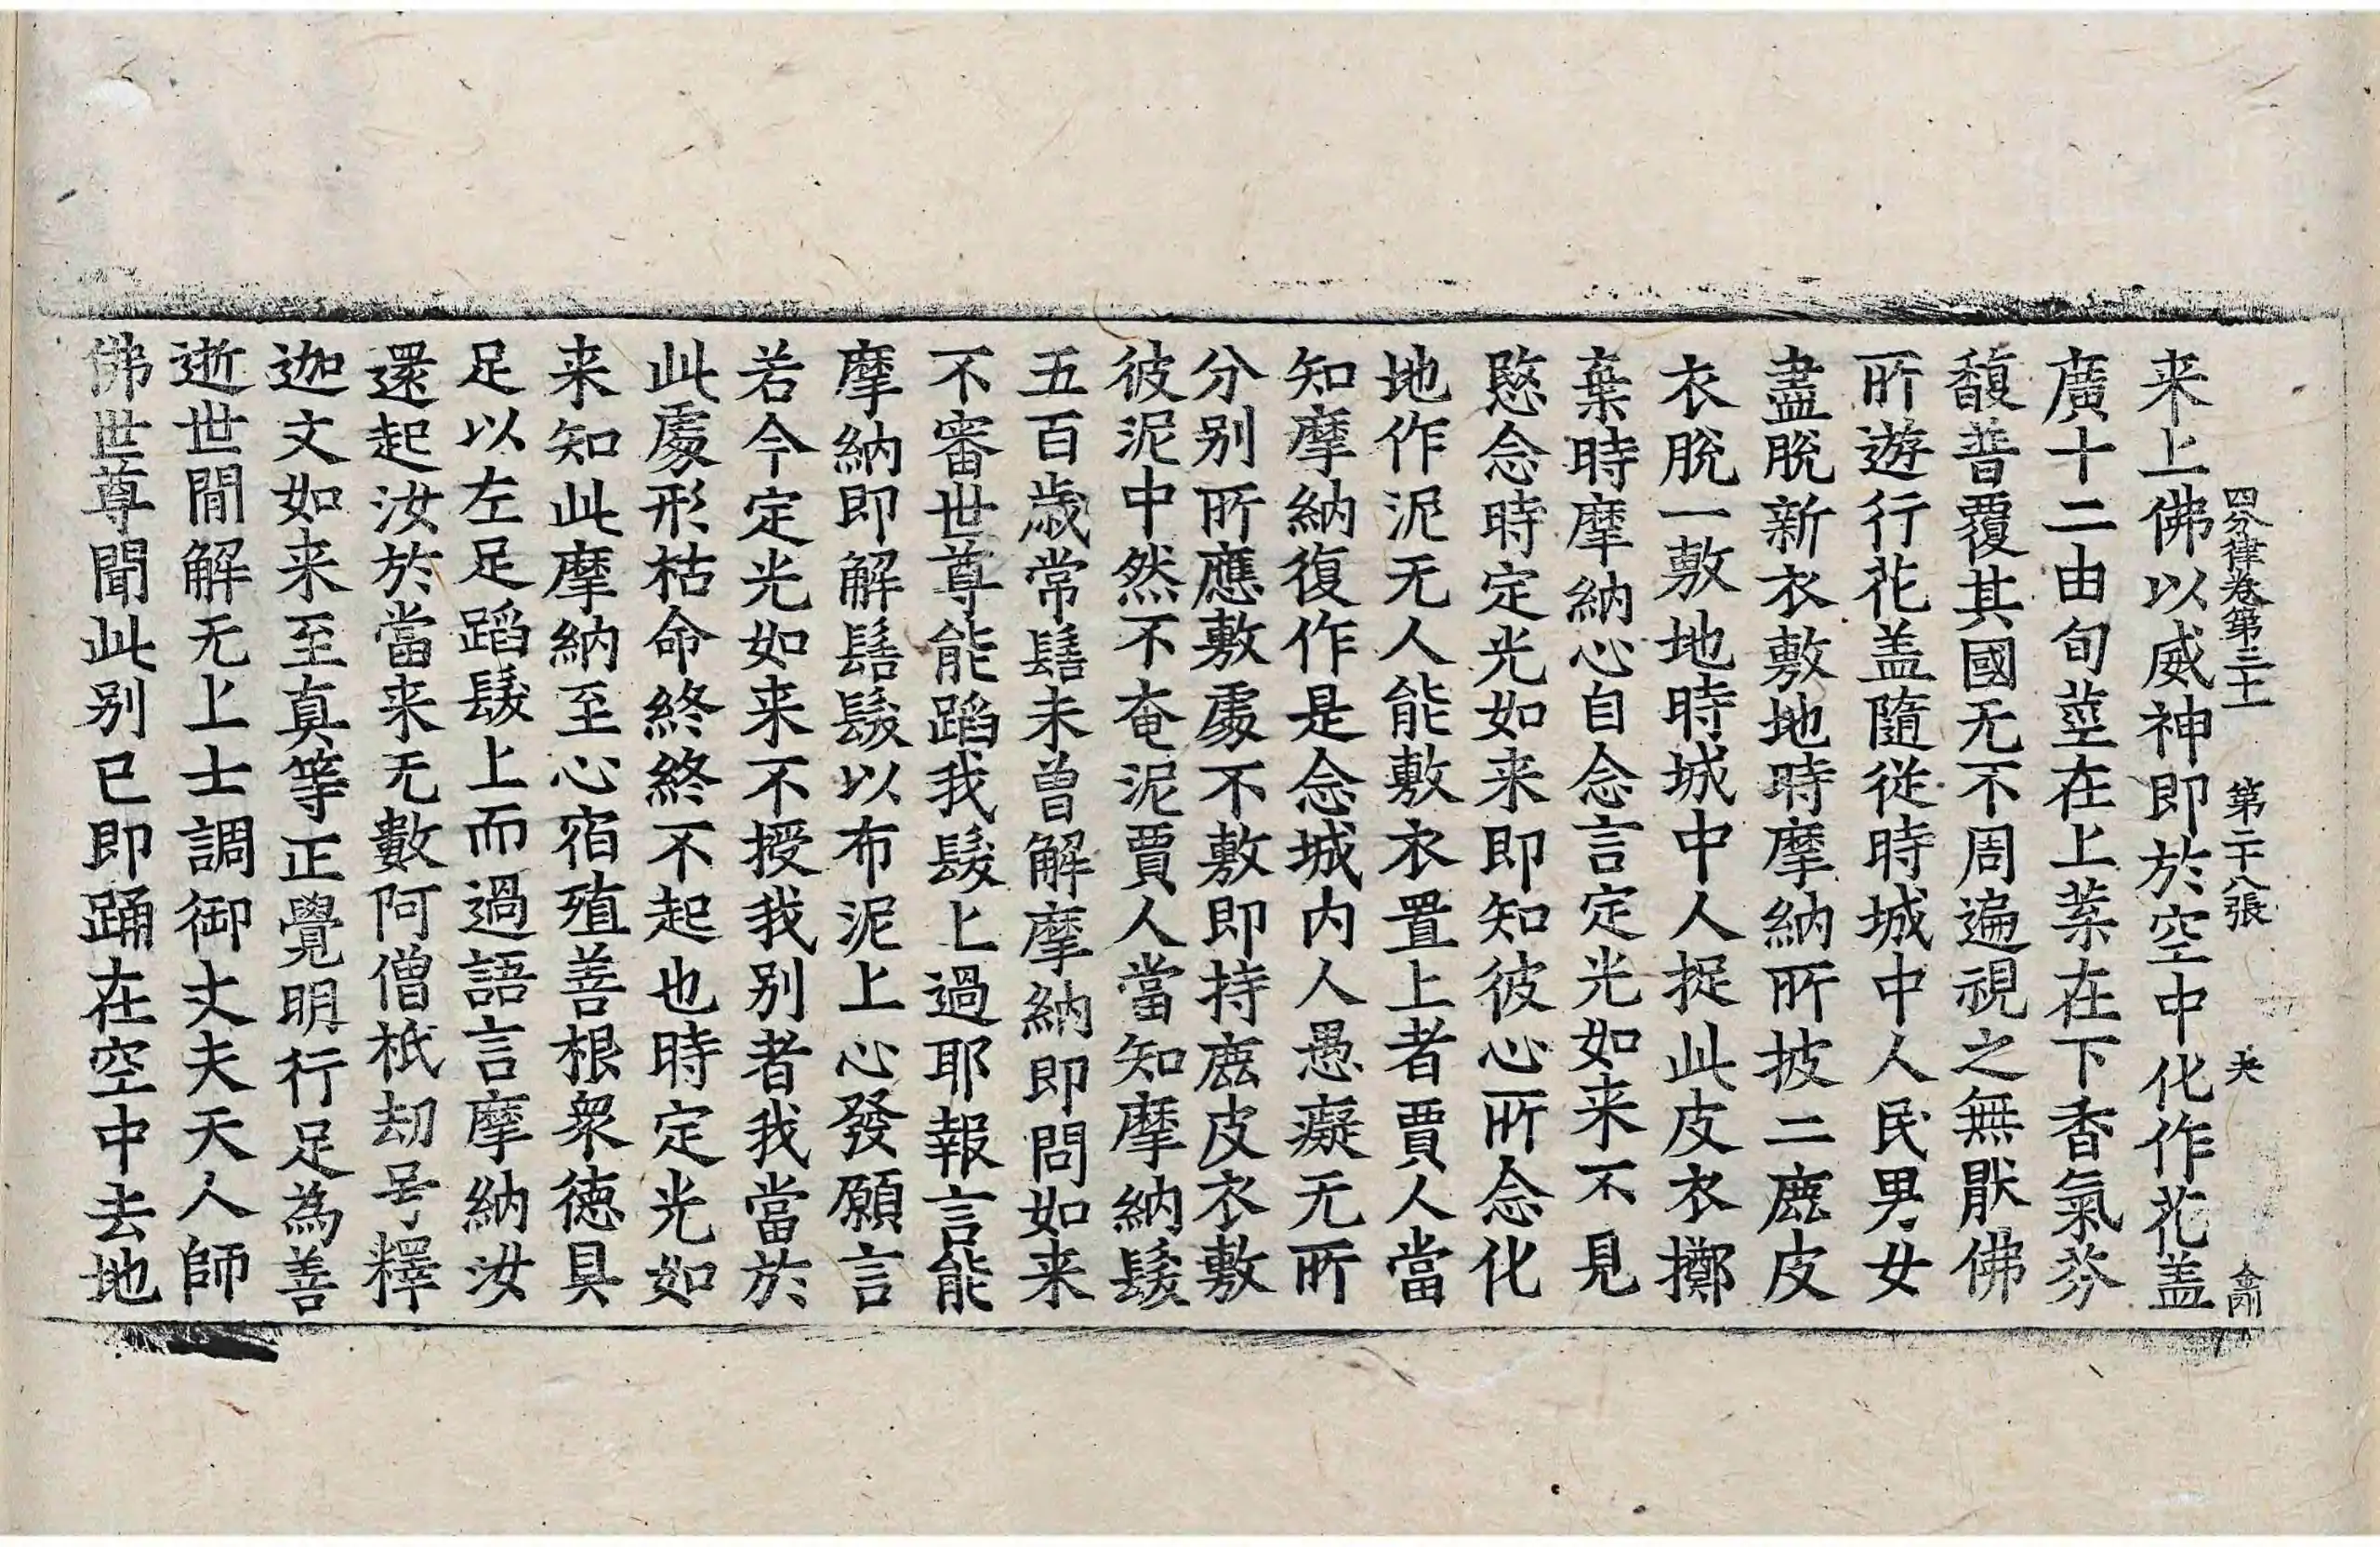 四分律卷第三十一 第二十八張 夫
来上佛以威神即於空中化作花盖
廣十二由旬莖在上葉在下香氣芬
馥普覆其國无不周遍視之無猒佛
所遊行花盖隨從時城中人民男女
盡脫新衣敷地時摩納所披二鹿皮
衣脫一敷地時城中人捉此皮衣擲
棄時摩納心自念言定光如来不見
愍念時定光如来即知彼心所念化
地作泥无人能敷衣置上者賈人當
知摩納復作是念城内人愚癡无所
分别所應敷處不敷即持鹿皮衣敷
彼泥中然不奄泥賈人當知摩納髮
五百歲常髻未曾解摩納即問如来
不審世尊能蹈我髮上過耶報言能
摩納即解髻髮以布泥上心發願言
若今定光如来不授我别者我當於
此處形枯命終終不起也時定光如
来知此摩納至心宿殖善根衆徳具
足以左足蹈髮上而過語言摩納汝
還起汝於當来无數阿僧祇劫号釋
迦文如来至真等正覺明行足為善
逝世間解无上士調御丈夫天人師
佛世尊聞此别已即踊在空中去地